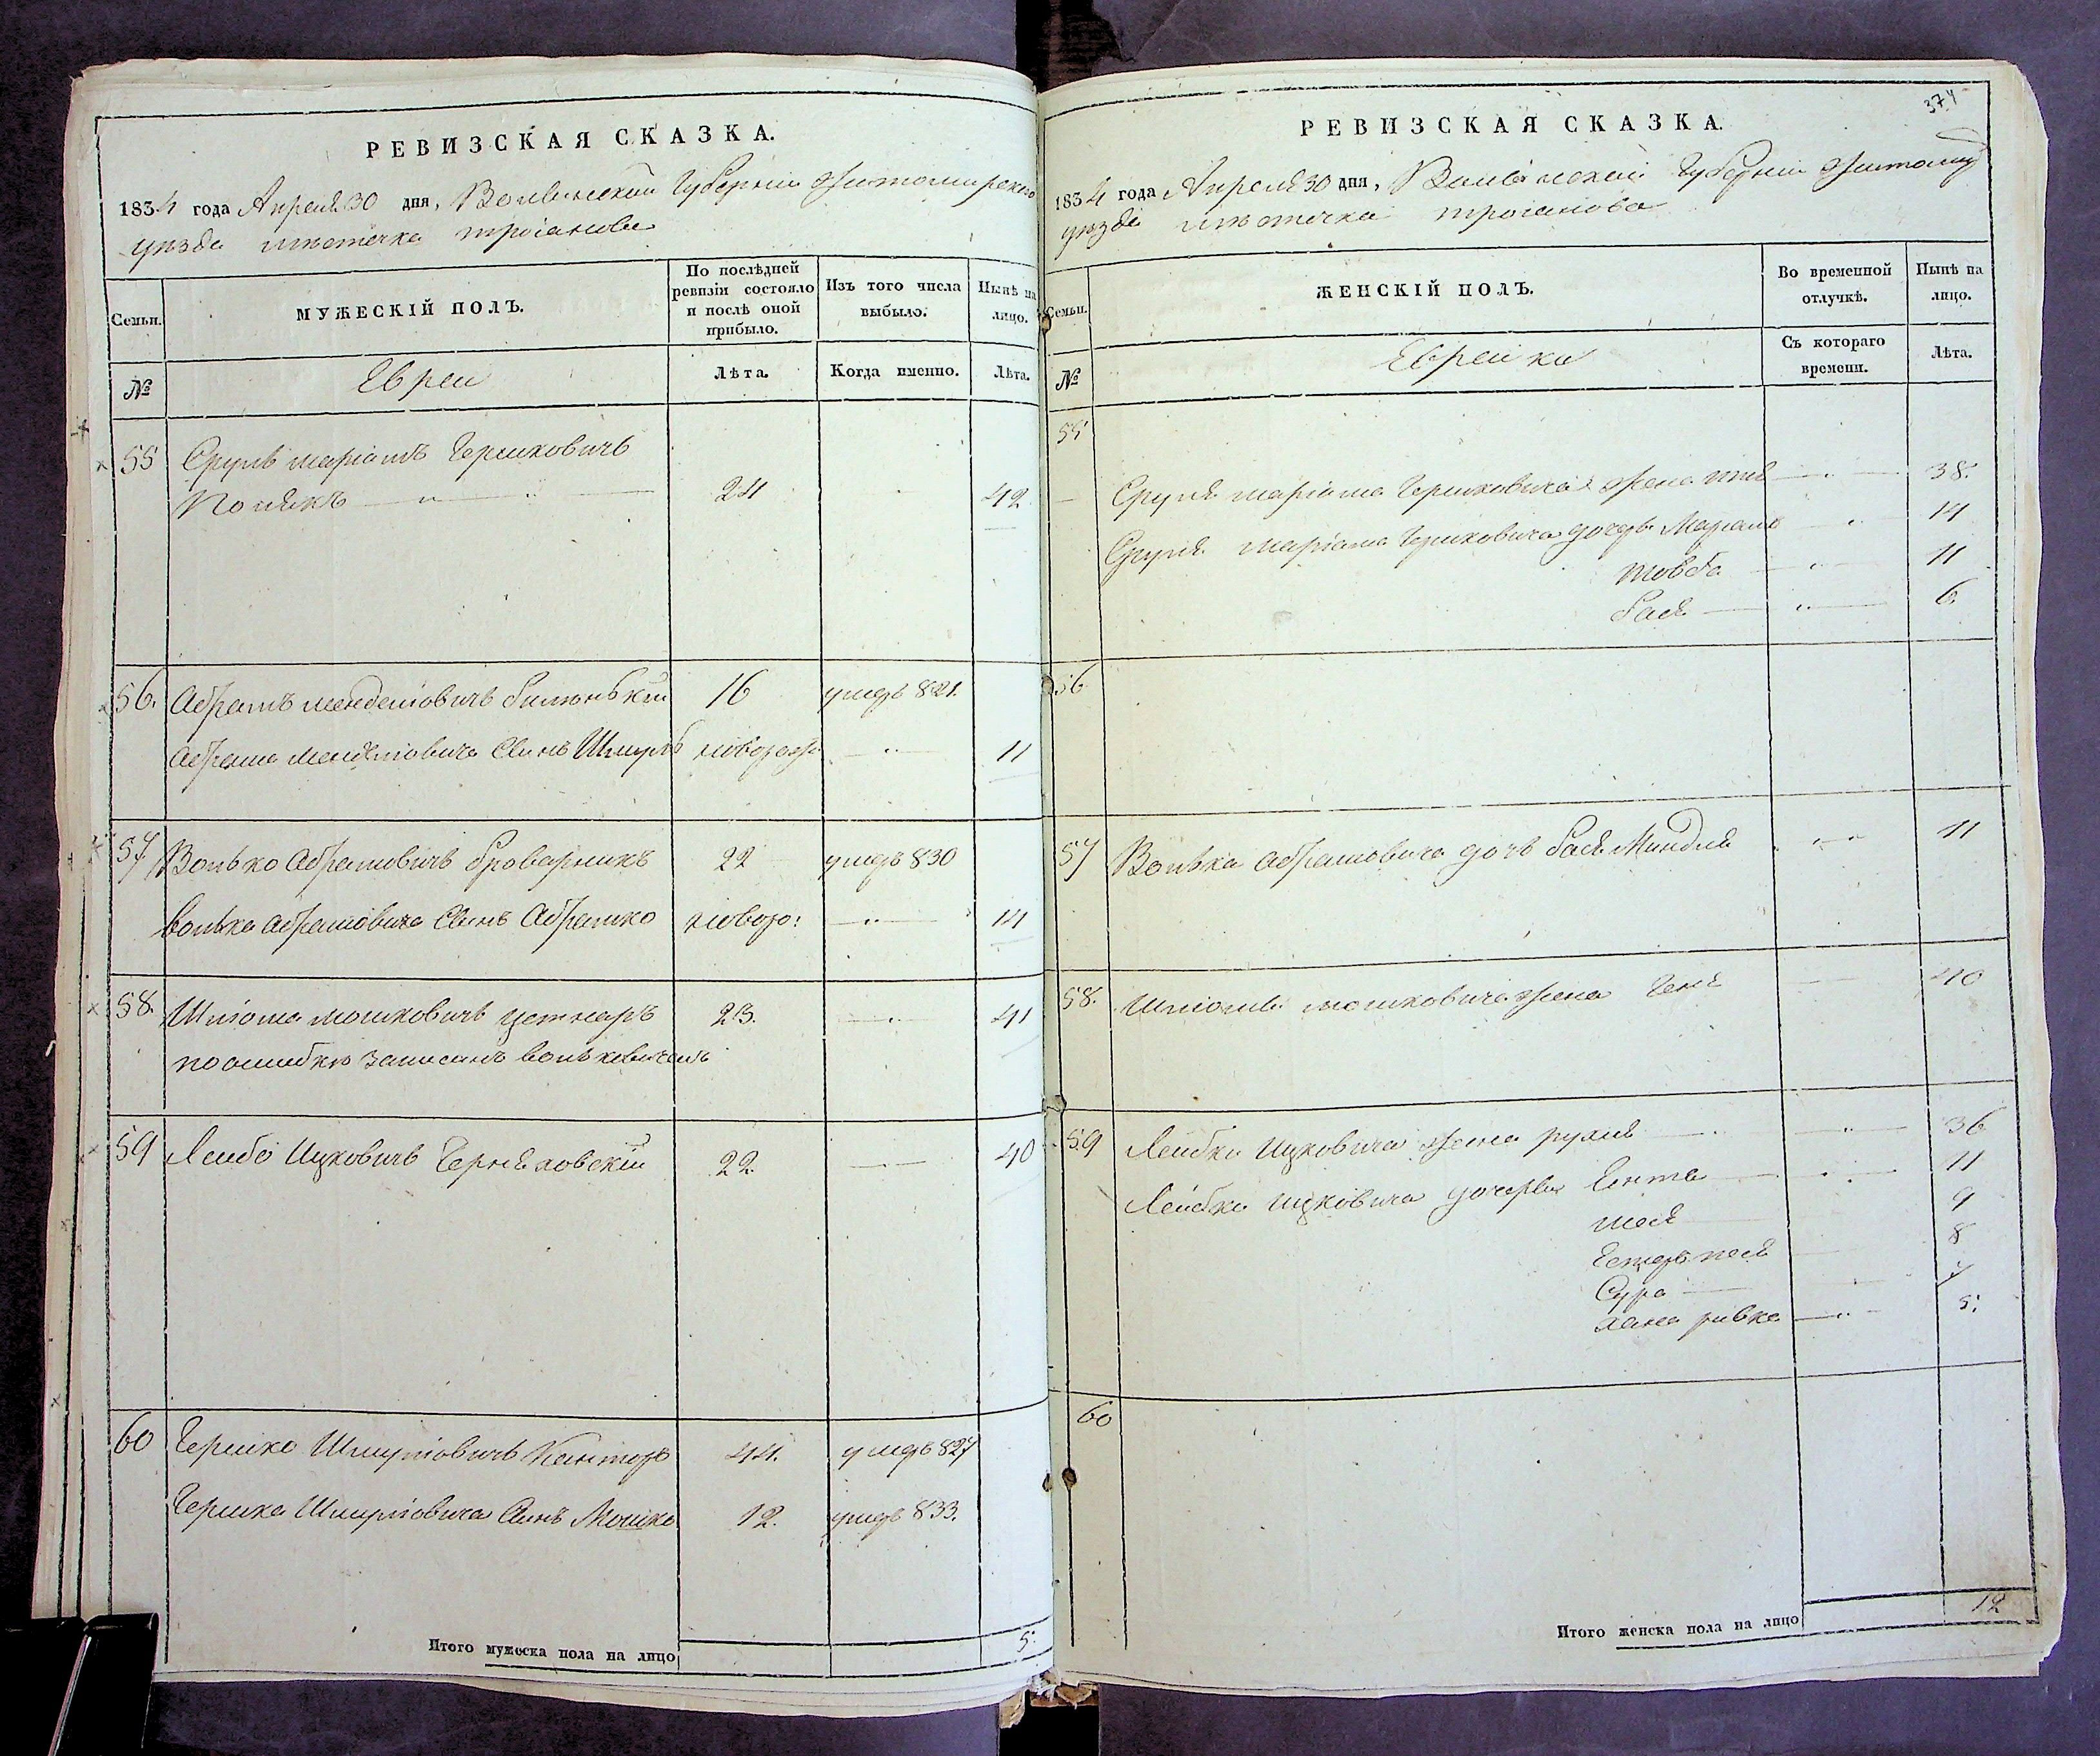 РЕВИЗСКАЯ СКАЗКА.
1834 года Апреля 30 дня, Волынской Губернии Житомирского
уезда местечка трояновa
Семьи.
МУЖЕСКІЙ ПОЛЪ.
По послѣдней ревизіи состояло и послѣ оной прибыло.
Изъ того числа выбыло.
Нынѣ на лицо.
№
Евреи
Лѣта.
Когда именно.
Лѣта.
55 Сруль маріамъ Гершковичъ
Полякъ 24 42
56. Абрамъ менделіовичъ 16 умеръ 821.
Абрама Менделіовича Сынъ Шмуль новорож 11
57 Волько Абрамовичъ броварникъ 22 умеръ 830
Волька Абрамовича Сынъ Абрамко новоро: 14
58. Шліома мошковичъ цетнаръ 23. 41
по ошибке записанъ вольковичемъ
59 Лейбо Ицковичъ Черняховскій 22. 40
60 Гершко Шмуліовичъ Канторъ 44. умеръ 827
Гершка Шмуліовича Сынъ Мошко 12. умеръ 833.
Итого мужеска пола на лицо 5.
374
РЕВИЗСКАЯ СКАЗКА.
1834 года Апреля 30 дня, Волынской Губерніи Житомир
уезда местечка троянова
Семьи.
ЖЕНСКІЙ ПОЛЪ.
Во временной отлучкѣ.
Нынѣ на лицо.
№
Еврейки
Съ котораго времени.
Лѣта.
55
Сруля маріама Гершковича жена 38.
Сруля маріама Гершковича дочери Маріам 14
товба 11
бася 6.
56
57 Волька Абрамовича дочь бася Миндля 11
58. Шліомы мошковича жена Геня 40
59 Лейбки Ицковича жена рухля 36
Лейбки Ицковича дочери Ента 11
9
Естеръ песя 8
Сура 7
хана ривка 5.
60
Итого женска пола на лицо 12